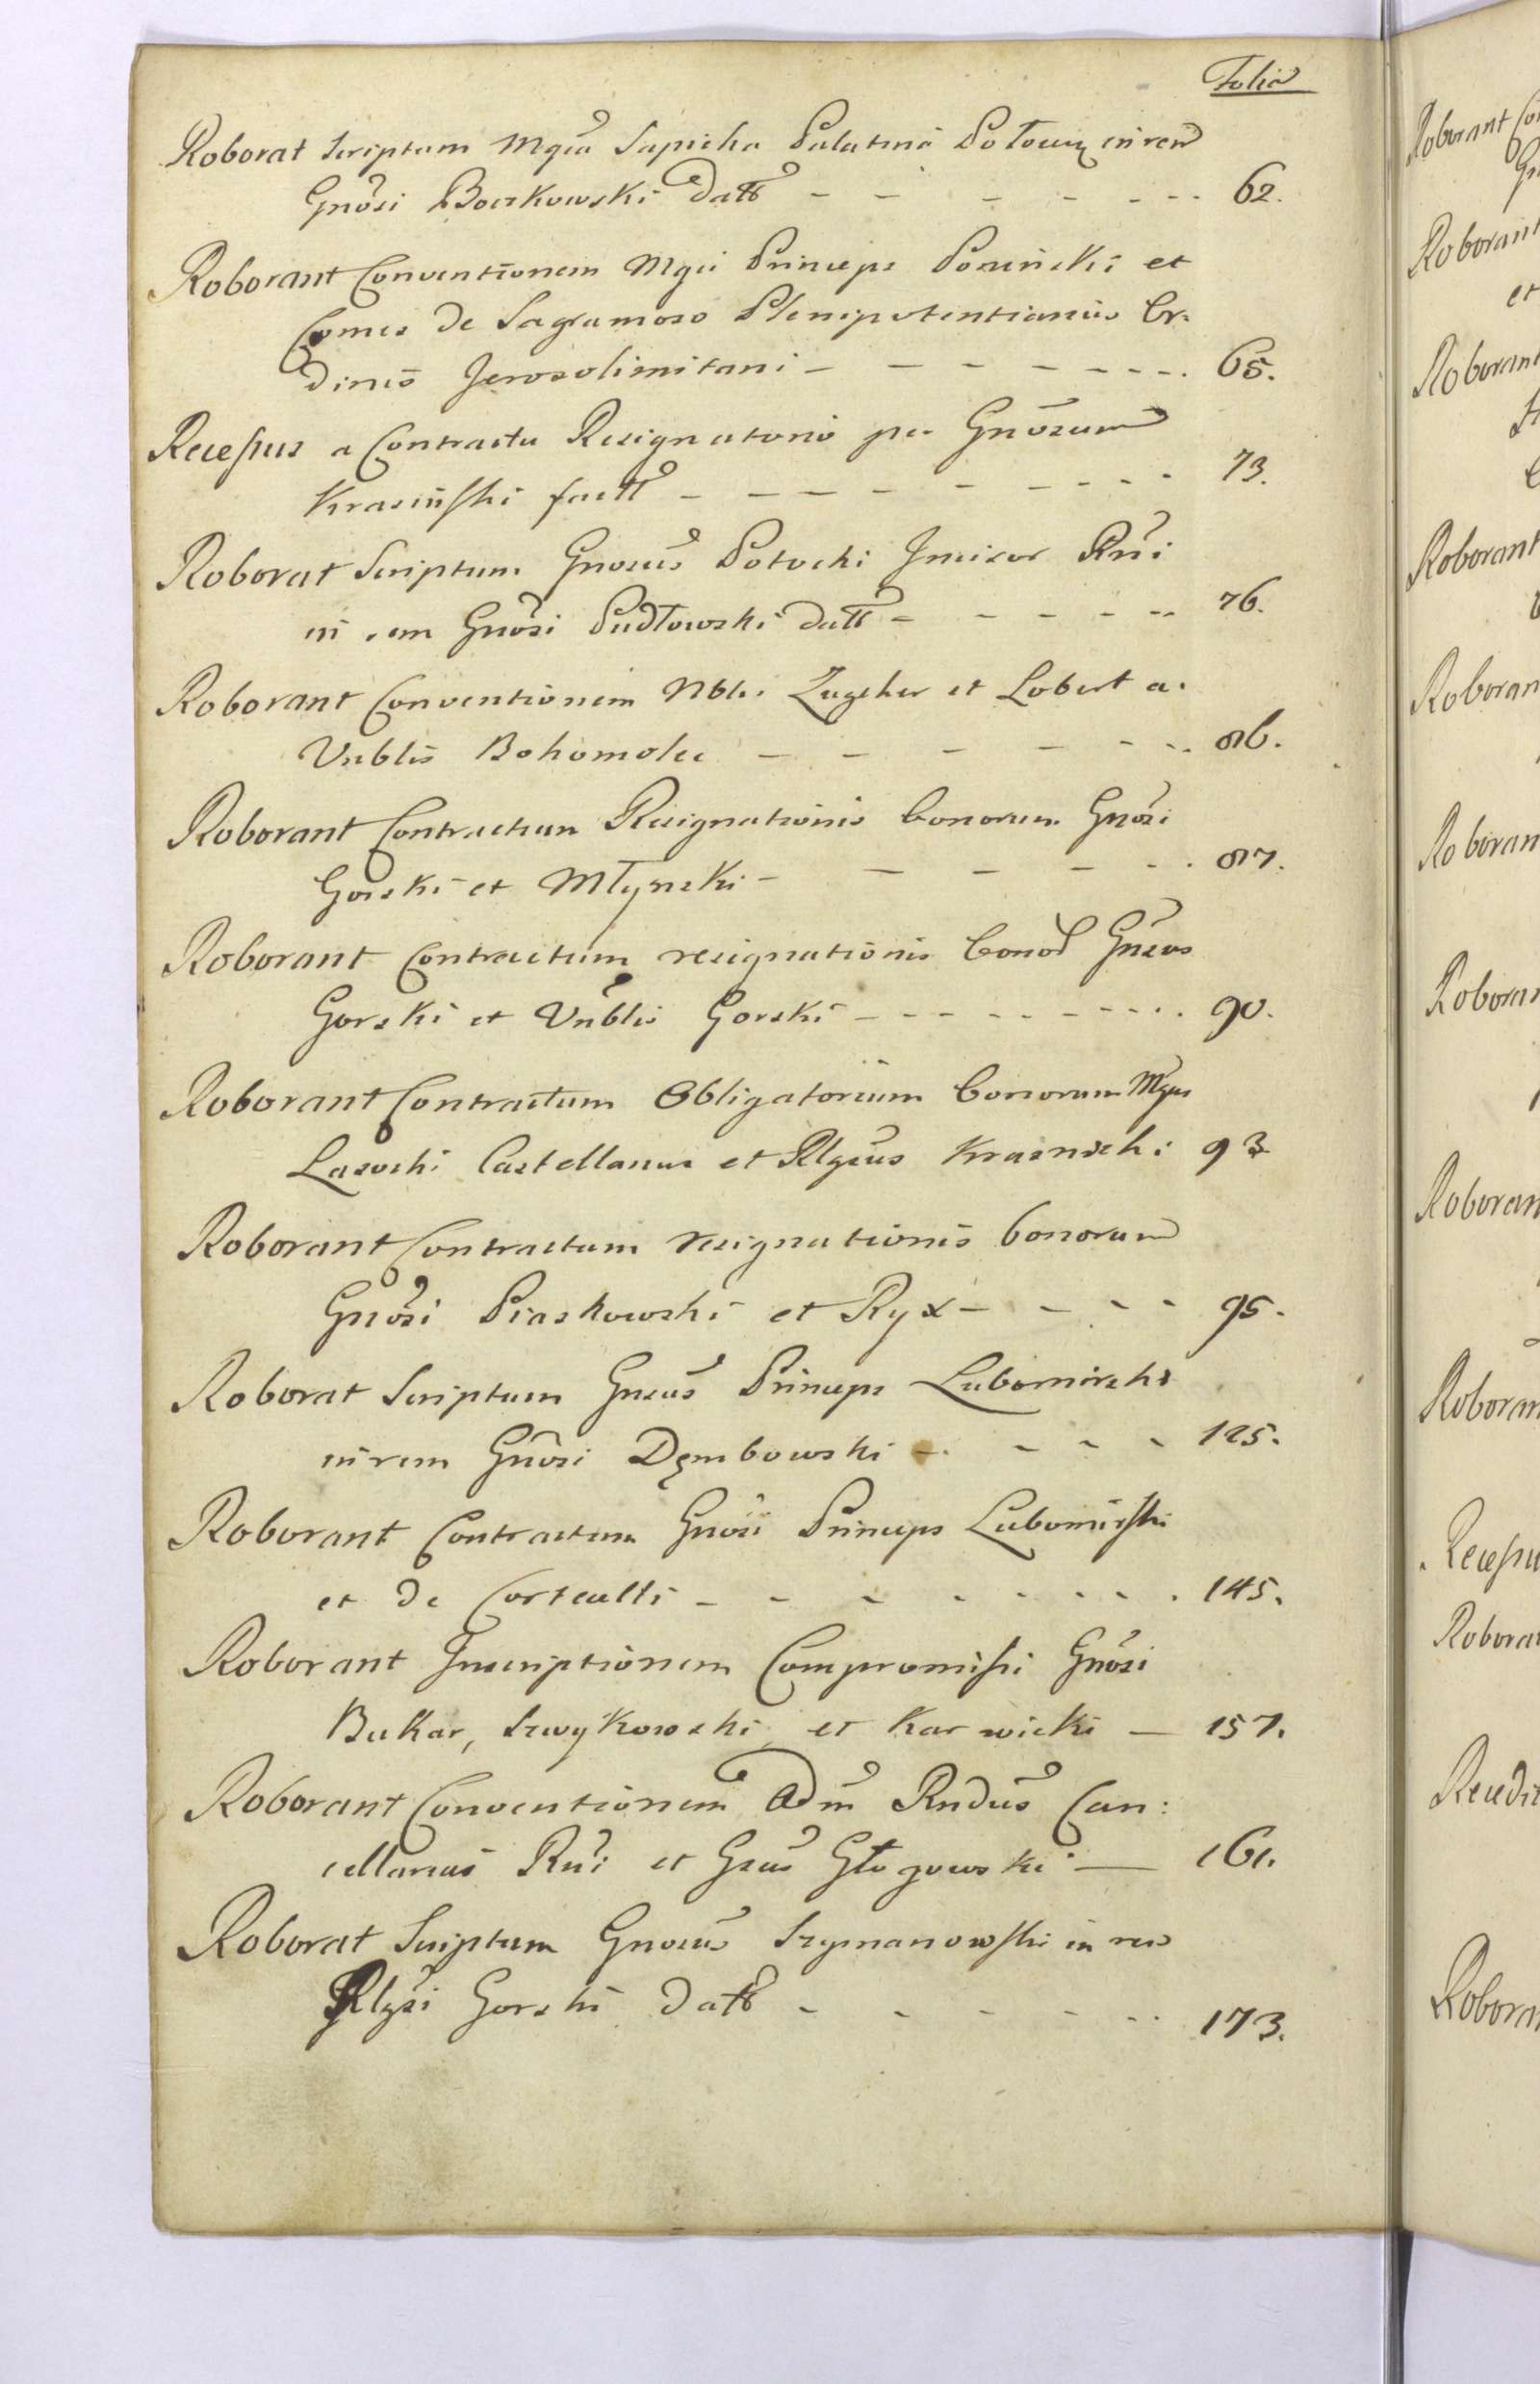 Folia
Roborat Scriptum Mgcus Sapieha Palatinus Połocen in rem
Gnosi Boczkowski datt - - - - - - 62.
Roborant Conventionem Mgci Princeps Poninski et
Comes de Sagramoso Plenipotentiarius Or-
dinis Jerosolimitani - - - - - - - 65.
Recessus a Contractu Resignatorio per Gnosum
Krasinski factt - - - - - - - - - 73.
Roborat Scriptum Gnosus Potocki Incisor Rni
in rem Gnosi Pudłowski datt - - - - - 76.
Roborant Conventionem Nbles Zugeher et Lobert a.
Vnblis Bohomolec - - - - - - - 86.
Roborant Contractum Resignationis bonorum Gnosi
Gorski et Młynski - - - - - - 87.
Roborant Contractum resignationis bonor Gnsus
Gorski et Vnblis Gorski - - - - - - - - - 90.
Roborant Contractum Obligatorium bonorum Mgcus
Lasocki Castellanus et Rlgsus Krasnicki 93
Roborant Contractum resignationis bonorum
Gnosi Piaskowski et Ryx - - - - 95.
Roborat Scriptum Gnsus Princeps Lubomirski
in rem Gnosi Dęmbowski - - - - 125.
Roborant Contractum Gnosi Princeps Lubomirski
et de Corticelli - - - - - - - - 145.
Roborant Inscriptionem Compromissi Gnosi
Bukar, Szwykowski, et Karwicki - 157.
Roborant Conventionem Adm Rndus Can:
cellarius Rni et Gsus Głogowski - 161.
Roborat Scriptum Gnosus Szymanowski in rem
Rlgsi Gorski datt - - - - - - 173.
Roborant
Roborant
et
Roborant
Roborant
Roboran
Roboran
Robora
Roboran
Roboran
Recessu
Robora
Recedit
Robora